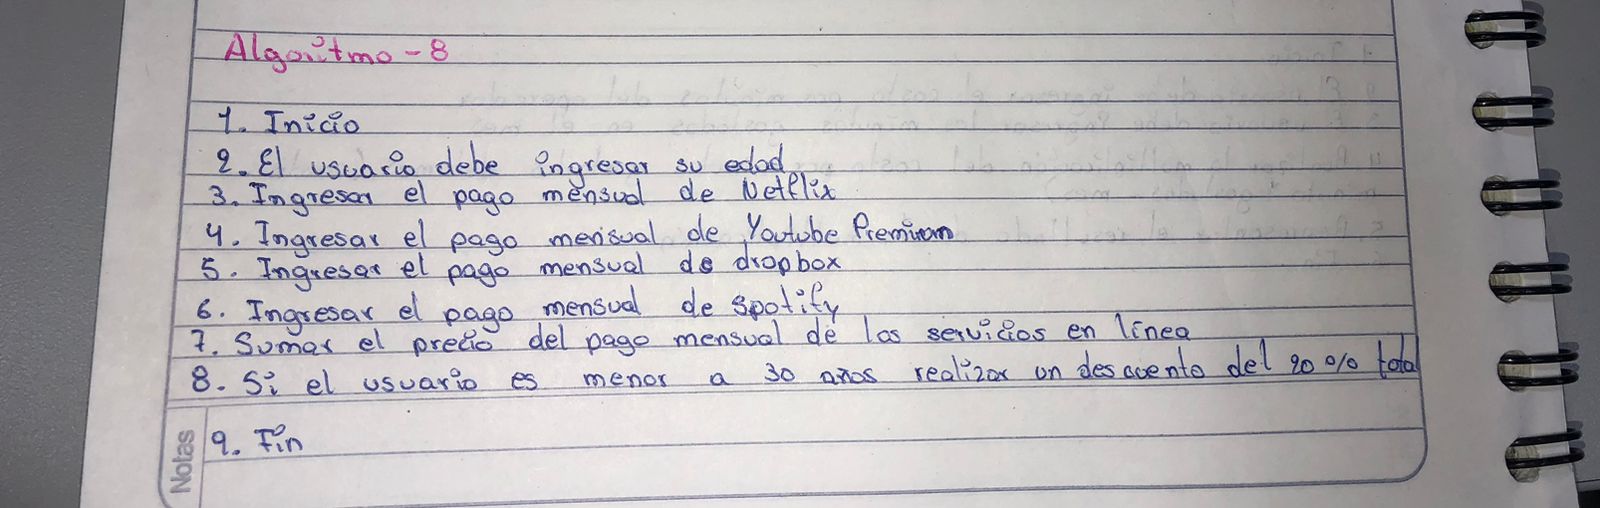 Algoritmo - 8
1. Inicio
2. El usuario debe ingresar su edad
3. Ingresar el pago mensual de Netflix
4. Ingresar el pago mensual de Youtube Premium
5. Ingresar el pago mensual de dropbox
6. Ingresar el pago mensual de spotify
7. Sumar el precio del pago mensual de los servicios en línea
8. Si el usuario es menor a 30 años realizar un descuento del 20 % total
9. Fin
Notas